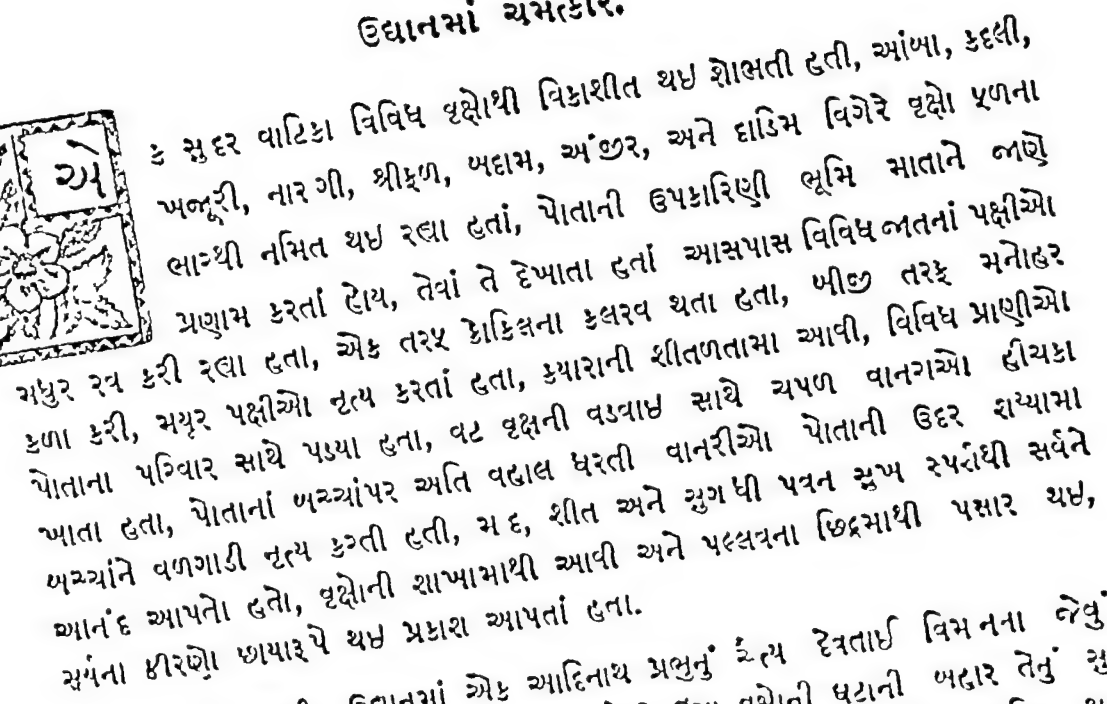 ઉદ્યાનમાં ચમત્કાર.
એ
ક સુદર વાટિકા વિવિધ વૃક્ષોથી વિકાશીત થઇ શોભતી હતી, આંબા, કદલી,
ખજૂરી, નારગી, શ્રીફળ, બદામ, અંજીર, અને દાડિમ વિગેરે વૃક્ષો ફળના
ભારથી નમિત થઇ રહ્યા હતાં, પોતાની ઉપકારિણી ભૂમિ માતાને જાણે
પ્રણામ કરતાં હોય, તેવાં તે દેખાતા હતાં આસપાસ વિવિધ જાતનાં પક્ષીઓ
મધુર રવ કરી રહ્યા હતા, એક તરફ કોકિલના કલરવ થતા હતા, બીજી તરફ મનોહર
કળા કરી, મયૂર પક્ષીઓ નૃત્ય કરતાં હતા, કયારાની શીતળતામા આવી, વિવિધ પ્રાણીઓ
પોતાના પરિવાર સાથે પડયા હતા, વટ વૃક્ષની વડવાઇ સાથે ચપળ વાનરાઓ હીચકા
ખાતા હતા, પોતાનાં બચ્ચાંપર અતિ વહાલ ધરતી વાનરીઓ પોતાની ઉદર શય્યામા
બચ્ચાંને વળગાડી નૃત્ય કરતી હતી, મદ, શીત અને સુગધી પવન સુખ સ્પર્શથી સર્વને
આનંદ આપતો હતો, વૃક્ષોની શાખામાથી આવી અને પલ્લવના છિદ્રમાથી પસાર થઇ,
સૂર્યના કીરણો છાયારૂપે થઇ પ્રકાશ આપતાં હતા.
ઉદ્યાનમાં એક આદિનાથ પ્રભુનું ચૈત્ય દેવતાઈ વિમાનના જેવું
વૃક્ષોની ઘટાની બહાર તેનું